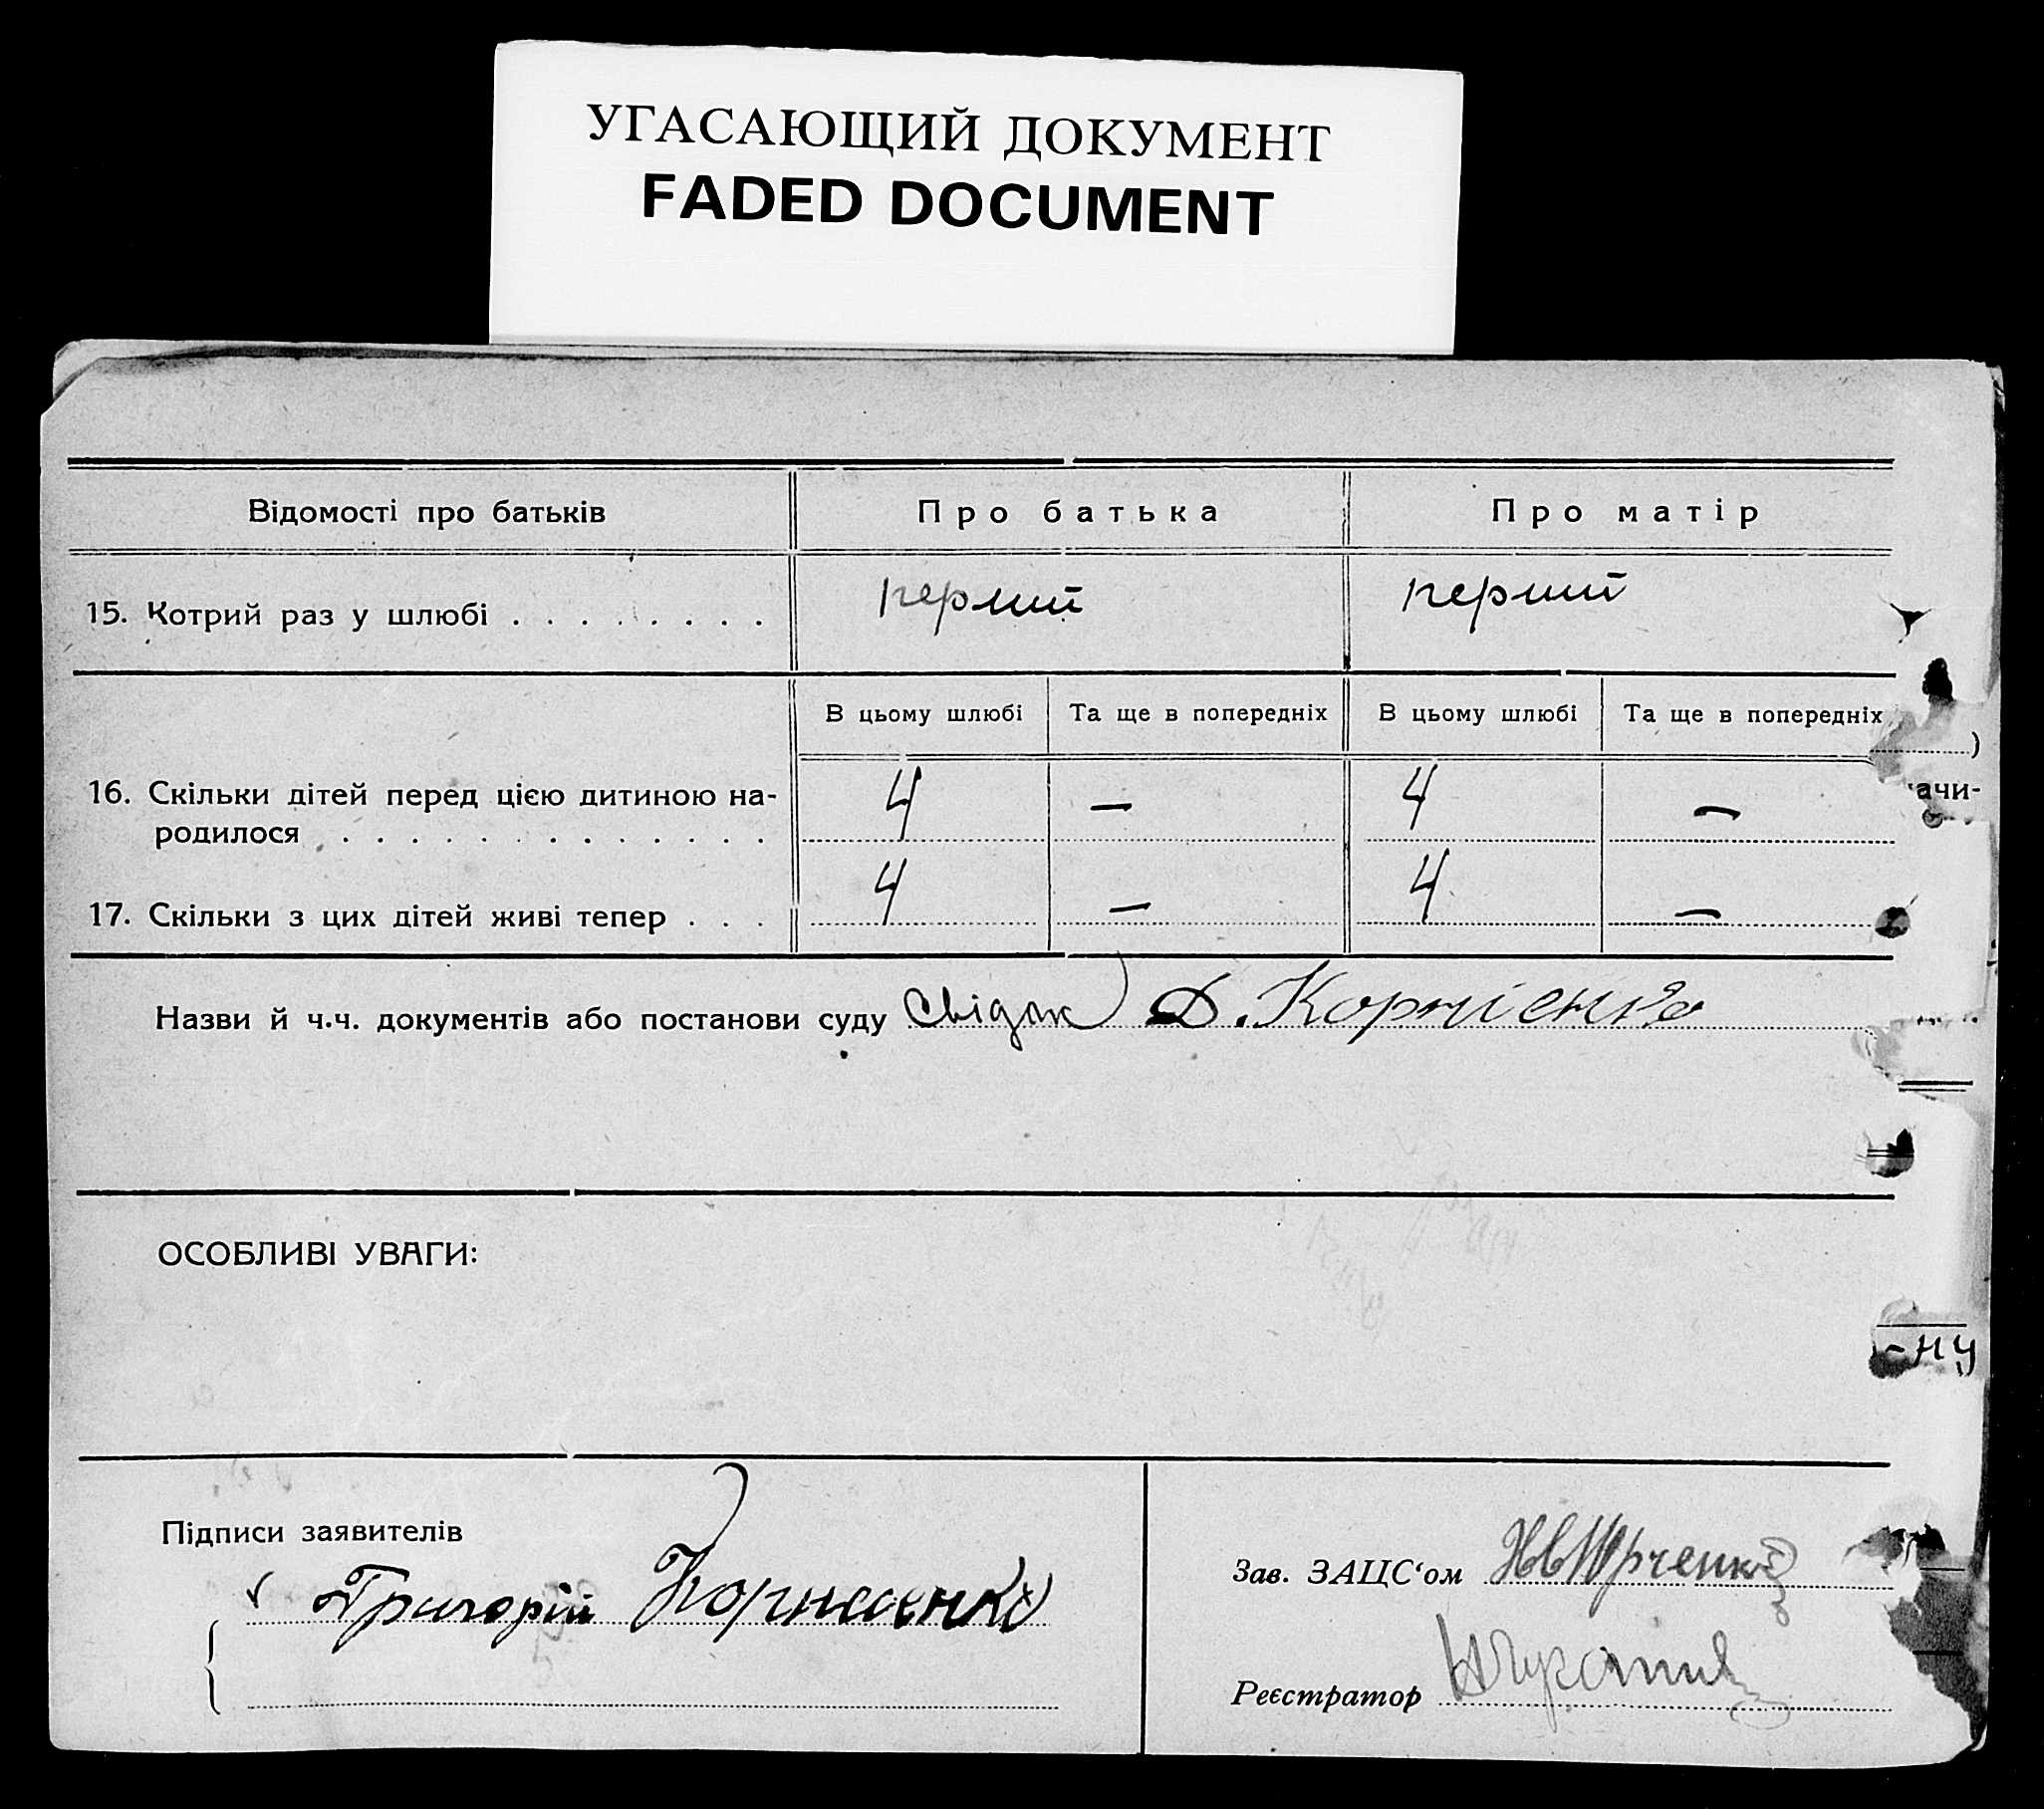 УГАСАЮЩИЙ ДОКУМЕНТ
FADED DOCUMENT
Відомості про батьків Про батька Про матір
15. Котрий раз у шлюбі . . . . . . . . перший перший
В цьому шлюбі Та ще в попередніх В цьому шлюбі Та ще в попередніх
)
16. Скільки дітей перед цією дитиною на- 4 — 4 — ачи-
родилося . . . . . . . . . . . . . .
17. Скільки з цих дітей живі тепер . . . 4 — 4 —
Назви й ч.ч. документів або постанови суду Свідок Д. Корнієнко
ОСОБЛИВІ УВАГИ:
-ну
Підписи заявителів
Зав. ЗАЦС‘ом Юрченко
Григорій Корнієнко
Реєстратор